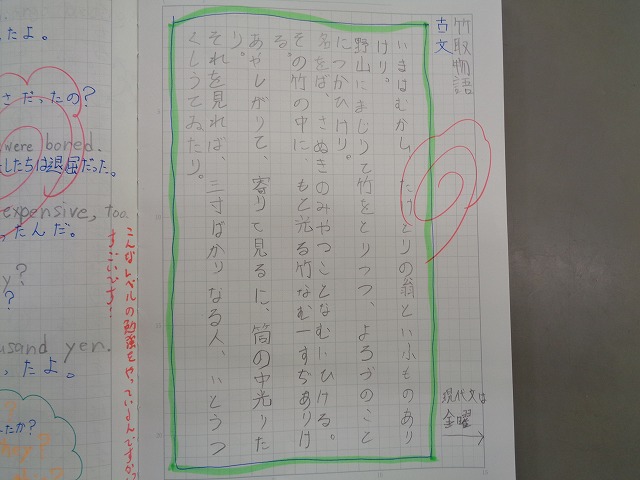 竹取物語
古文
いまはむかし、たけとりの翁といふものあり
けり。
野山にまじりて竹をとりつつ、よろづのこと
につかひけり。
名をば、さぬきのみやつことなむいひける。
その竹の中に、もと光る竹なむ一すぢありけ
る。
あやしがりて、寄りて見るに、筒の中光りた
り。
それを見れば、三寸ばかりなる人、いとうつ
くしうてゐたり。
現代文は
金曜
こんなレベルの勉強をやっているんですか?
すごいです!
たよ。
さだったの?
were bored.
したちは退屈だった。
expensive, too.
ったんだ。
y?
?
usand yen.
ったよ。
たか?